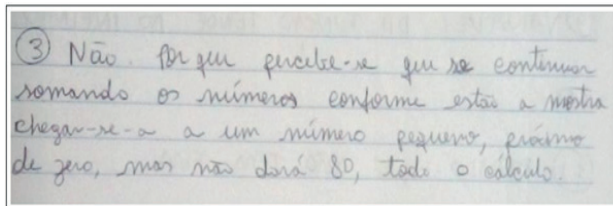 ③ Não. Por que percebe-se que se continuar
somando os números conforme estão a mostra
chegar-se-a a um número pequeno, próximo
de zero, mas não dará 80, todo o cálculo.